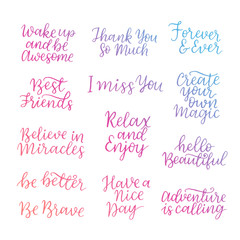 Wake up
and be
Awesome
Thank You
So Much
Forever
& Ever
Best
Friends
I miss You
Create
your own
Magic
Believe in
Miracles
Relax
and
Enjoy
hello
Beautiful
be better
Be Brave
Have a
Nice
Day
Adventure
is calling